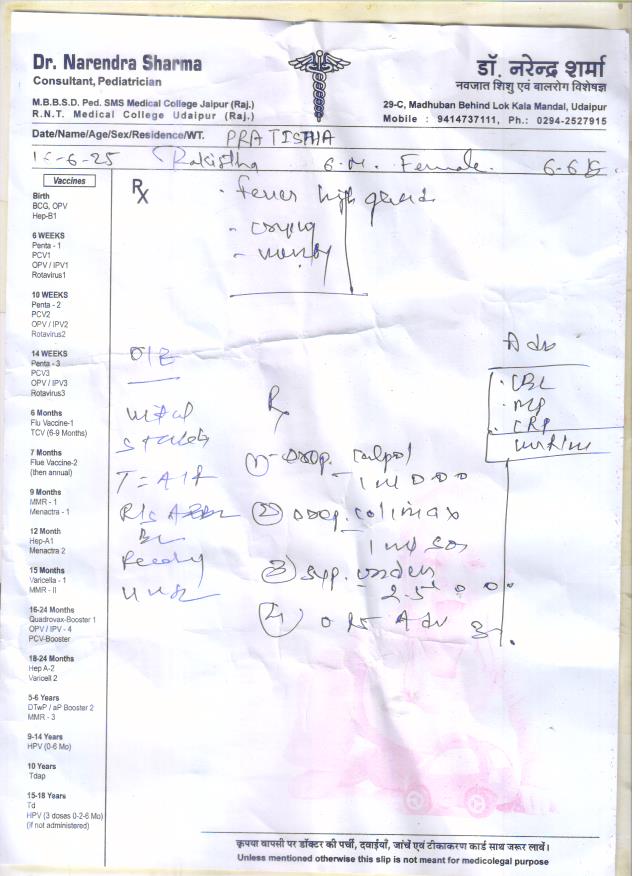 Dr. Narendra Sharma
Consultant, Pediatrician
M.B.B.S.D. Ped. SMS Medical College Jaipur (Raj.)
R.N.T. Medical College Udaipur (Raj.)
डॉ. नरेन्द्र शर्मा
नवजात शिशु एवं बालरोग विशेषज्ञ
29-C, Madhuban Behind Lok Kala Mandal, Udaipur
Mobile : 9414737111, Ph.: 0294-2527915
Date/Name/Age/Sex/Residence/WT. PRATISTHA
6-25 6 M. Female 6-6
Vaccines
Birth
BCG, OPV
Hep-B1
6 WEEKS
Penta - 1
PCV1
OPV / IPV1
Rotavirus1
10 WEEKS
Penta - 2
PCV2
OPV / IPV2
Rotavirus2
14 WEEKS
Penta - 3
PCV3
OPV / IPV3
Rotavirus3
6 Months
Flu Vaccine-1
TCV (6-9 Months)
7 Months
Flue Vaccine-2
(then annual)
9 Months
MMR - 1
Menactra - 1
12 Month
Hep-A1
Menactra 2
15 Months
Varicella - 1
MMR - II
16-24 Months
Quadrovax-Booster 1
OPV / IPV - 4
PCV-Booster
18-24 Months
Hep A-2
Varicell 2
5-6 Years
DTwP / aP Booster 2
MMR - 3
9-14 Years
HPV (0-6 Mo)
10 Years
Tdap
15-18 Years
Td
HPV (3 doses 0-2-6 Mo)
(if not administered)
Rx
- Fever high grade
- crying
O/E
T = A/F
R/S
Rx
① Drop. Calpol
② Drop. Colimax
1 ml SOS
③ Syp.
2.5
④ ORS Adv
Adv
· CBC
· MP
· CRP
कृपया वापसी पर डॉक्टर की पर्ची, दवाईयाँ, जांचें एवं टीकाकरण कार्ड साथ जरूर लावें।
Unless mentioned otherwise this slip is not meant for medicolegal purpose